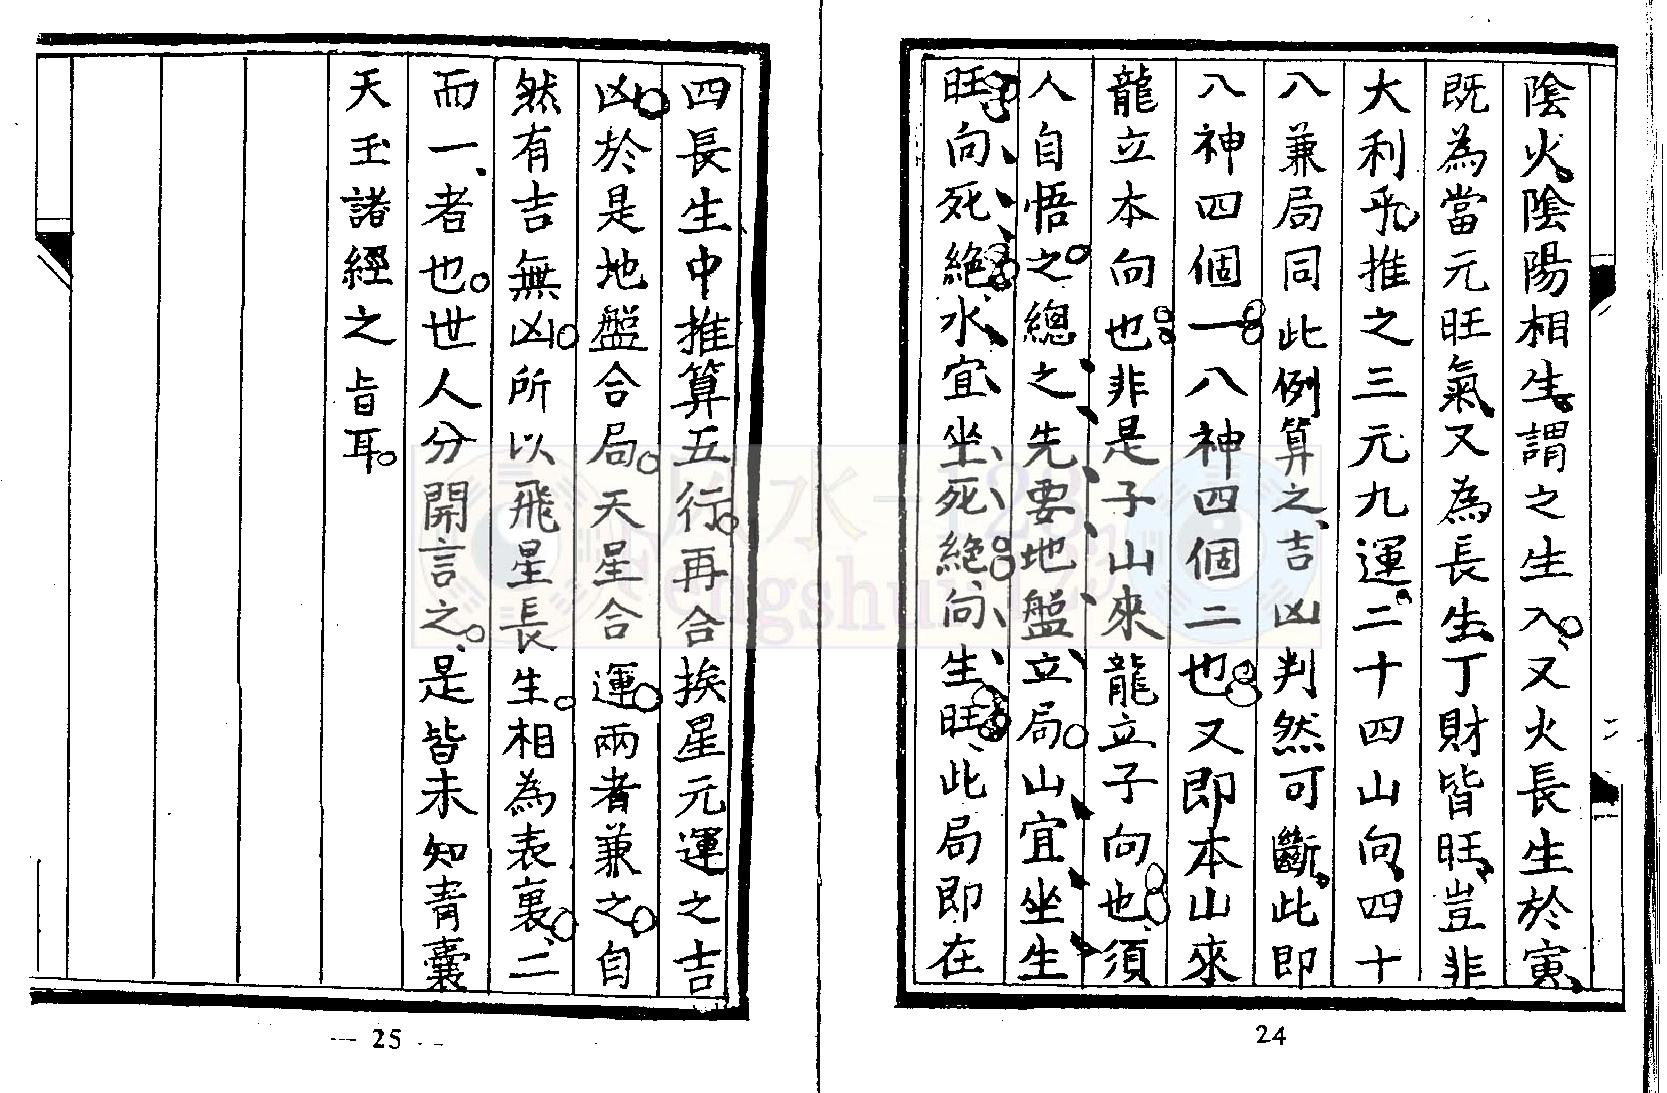 陰火。陰陽相生。謂之生入。又火長生於寅、
既為當元旺氣、又為長生、丁財皆旺、豈非
大利乎。推之三元九運。二十四山向、四十
八兼局同此例算之、吉凶判然可斷。此即
八神四個一。八神四個二也。又即本山來
龍立本向也。非是子山來龍立子向也、須
人自悟之。總之、先要地盤立局。山宜坐生
旺。向死絕。水宜坐死絕、向生旺、此局即在
24
四長生中推算五行。再合挨星元運之吉
凶。於是地盤合局。天星合運。兩者兼之。自
然有吉無凶。所以飛星長生。相為表裏。二
而一、者也。世人分開言之。是皆未知青囊
天玉諸經之旨耳。
— 25 —
风水一123
Fengshui-123